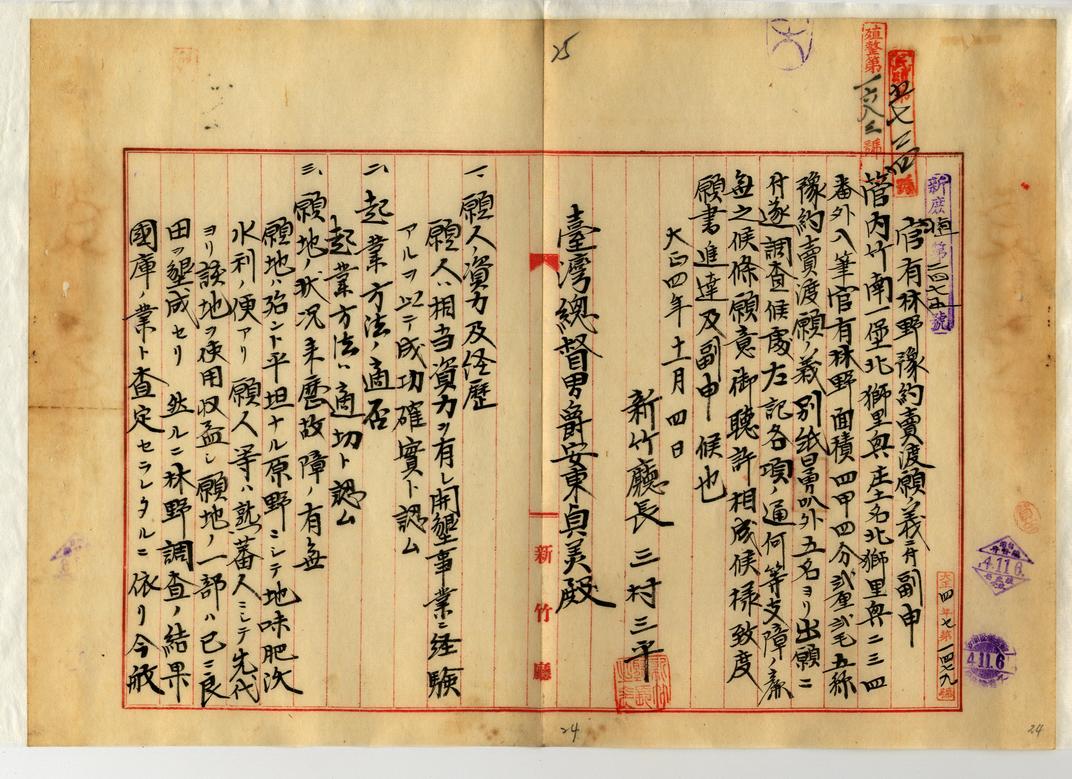 25
殖整第一六八三號
五七三四
新庶 第二四七五號
官有林野豫約賣渡願ノ義ニ付副申
管内竹南一堡北獅里興庄土名北獅里興二三四
番外八筆官有林野面積四甲四分貳厘貳毛五絲
豫約賣渡願ノ義別紙日鼻叭外五名ヨリ出願ニ
付遂調査候處左記各項ノ通何等支障ノ廉
無之候條願意御聽許相成候樣致度
願書進達及副申候也
大正四年十一月四日
新竹廳長 三村三平
臺灣總督男爵安東貞美殿
一、願人資力及経歴
願人ハ相当資力ヲ有シ開墾事業ニ経験
アルヲ以テ成功確實ト認ム
二、起業方法ノ適否
起業方法ハ適切ト認ム
三、願地ノ状况来歴故障ノ有無
願地ハ殆ント平坦ナル原野ニシテ地味肥沃
水利ノ便アリ 願人等ハ熟蕃人ニシテ先代
ヨリ該地ヲ使用収益シ願地ノ一部ハ已ニ良
田ヲ墾成セリ 然ルニ林野調査ノ結果
國庫ノ業ト査定セラレタルニ依リ今般
新竹廳
大正四年七第一四七九號
4.11.6
4.11.6
24
24